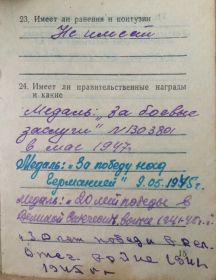 23. Имеет ли ранения и контузии
Не имеет
24. Имеет ли правительственные награды
и какие
Медаль: "За боевые
заслуги" N 1303801
в мае 1947.
Медаль: "За победу над
Германией" 9.05.1945г.
Медаль: "20 лет победы в
Великой Отечеств. войне 1941-45г."
30 лет победы в Вел.
Отеч. войне 1941-
1945 г.